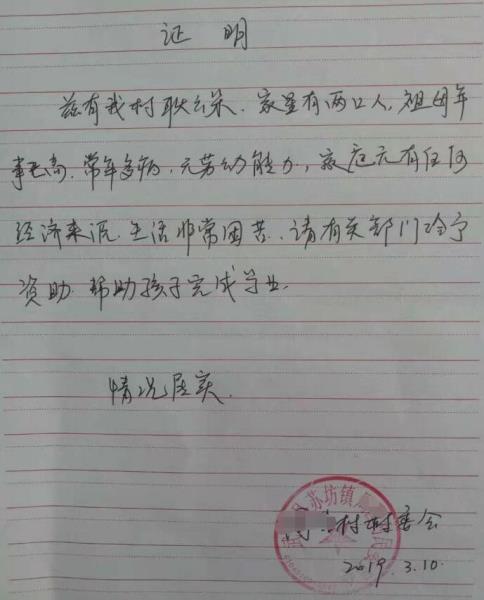 证 明
兹有我村耿云朵、家里有两口人,祖母年
事已高、常年多病,无劳动能力,家庭无有任何
经济来源、生活非常困苦、请有关部门给予
资助、帮助孩子完成学业。
情况属实.
村村委会
2019.3.10.
县苏坊镇